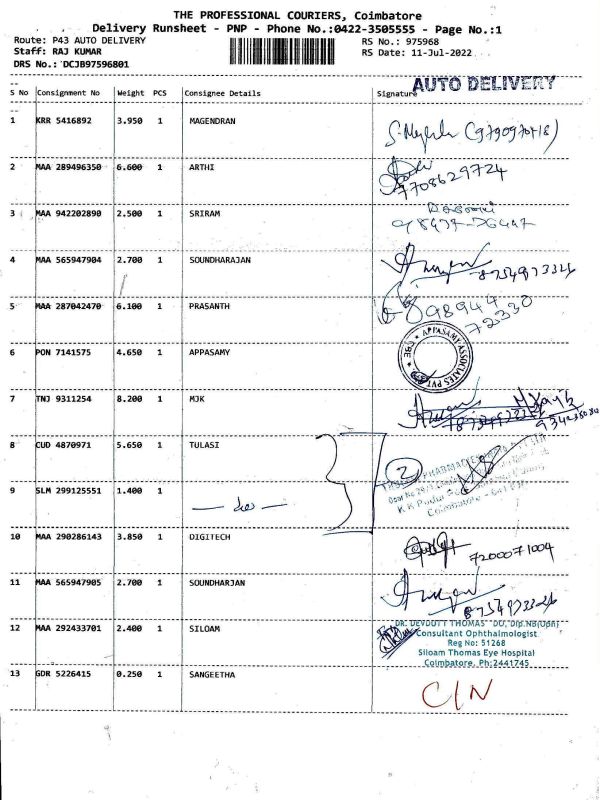 THE PROFESSIONAL COURIERS, Coimbatore
Delivery Runsheet - PNP - Phone No.:0422-3505555 - Page No.:1
Route: P43 AUTO DELIVERY RS No.: 975968
Staff: RAJ KUMAR RS Date: 11-Jul-2022
DRS No.: DCJB97596801
AUTO DELIVERY
S No Consignment No Weight PCS Consignee Details Signature
1 KRR 5416892 3.950 1 MAGENDRAN
2 MAA 289496350 6.600 1 ARTHI
7708629724
3 MAA 942202890 2.500 1 SRIRAM
4 MAA 565947904 2.700 1 SOUNDHARAJAN
8754973326
5 MAA 287042470 6.100 1 PRASANTH
98944
72330
6 PON 7141575 4.650 1 APPASAMY
APPASAMY ASSOCIATES PVT
CBE
7 TNJ 9311254 8.200 1 MJK
8 CUD 4870971 5.650 1 TULASI
2
9 SLM 299125551 1.400 1
Coimbatore
10 MAA 290286143 3.850 1 DIGITECH
7200071004
11 MAA 565947905 2.700 1 SOUNDHARJAN
8754973326
12 MAA 292433701 2.400 1 SILOAM
DR. DEVDUTT THOMAS DO, Dip.NB(Oph)
Consultant Ophthalmologist
Reg No: 51268
Siloam Thomas Eye Hospital
Coimbatore. Ph:2441745
13 GDR 5226415 0.250 1 SANGEETHA
C/N